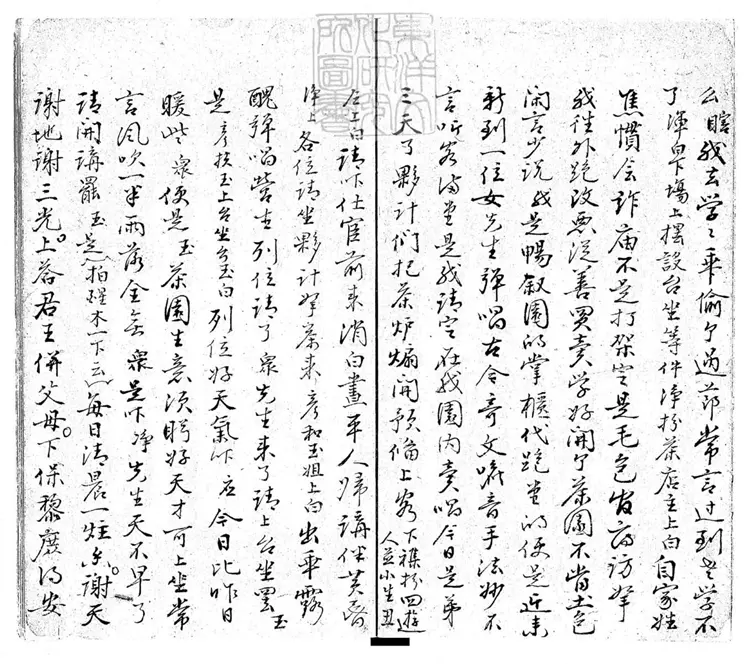 么瞎我去学〻乖偷了过節常言过到老学不
了渾白下場上摆設台坐等件净扮茶店主上白自家姓
焦慣会詐庙不是打架定是毛包皆府訪拏
我往外跑改惡从善買卖学好開个茶園不肯土包
闲言少说我是暢叙園的掌櫃代跑堂的便是近来
新到一位女先生弹唱古今奇文嗓音手法妙不
言听客滿堂是我請定在我園内卖唱今日是第
三天了夥计们把茶炉煽開預偹上客下襍扮四遊人並小生丑
应上白請吓仕宦前来消白晝平人帰講伴黄昏
净上各位請坐夥计拏茶来彦和玉姐上白出乖露
醜弹唱营生列位請了衆先生来了請上台坐罢玉
是彦扶玉上台坐介玉白列位好天氣吓应今日比昨日
暖些衆便是玉茶園生意须盻好天才可上坐常
言風吹一半雨落全無衆是吓净先生天不早了
請開講罷玉是拍醒木一下云每日清晨一炷香謝天
謝地謝三光上答君王併父母下保黎庶得安
東洋文化研究所圖書